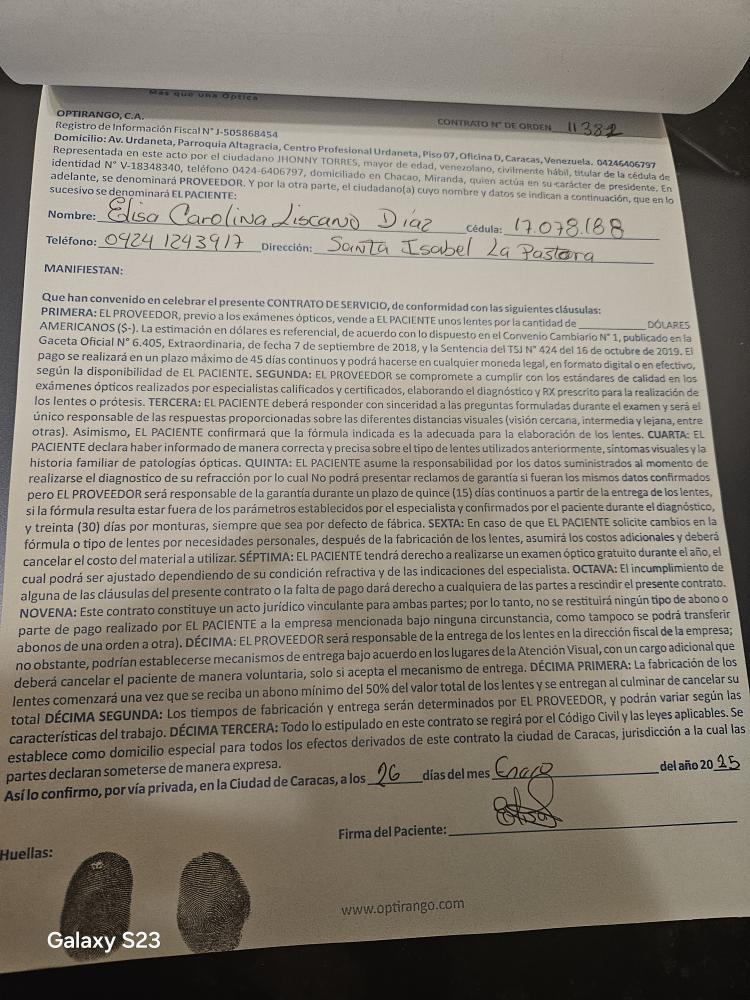 Más que una Óptica
OPTIRANGO, C.A.
CONTRATO N° DE ORDEN 11382
Registro de Información Fiscal N° J-505868454
Domicilio: Av. Urdaneta, Parroquia Altagracia, Centro Profesional Urdaneta, Piso 07, Oficina D, Caracas, Venezuela. 04246406797
Representada en este acto por el ciudadano JHONNY TORRES, mayor de edad, venezolano, civilmente hábil, titular de la cédula de
identidad N° V-18348340, teléfono 0424-6406797, domiciliado en Chacao, Miranda, quien actúa en su carácter de presidente. En
adelante, se denominará PROVEEDOR. Y por la otra parte, el ciudadano(a) cuyo nombre y datos se indican a continuación, que en lo
sucesivo se denominará EL PACIENTE:
Nombre: Elisa Carolina Liscano Díaz Cédula: 17.078.188
Teléfono: 0424 1243917 Dirección: Santa Isabel La Pastora
MANIFIESTAN:
Que han convenido en celebrar el presente CONTRATO DE SERVICIO, de conformidad con las siguientes cláusulas:
PRIMERA: EL PROVEEDOR, previo a los exámenes ópticos, vende a EL PACIENTE unos lentes por la cantidad de ____________ DÓLARES
AMERICANOS ($-). La estimación en dólares es referencial, de acuerdo con lo dispuesto en el Convenio Cambiario N° 1, publicado en la
Gaceta Oficial N° 6.405, Extraordinaria, de fecha 7 de septiembre de 2018, y la Sentencia del TSJ N° 424 del 16 de octubre de 2019. El
pago se realizará en un plazo máximo de 45 días continuos y podrá hacerse en cualquier moneda legal, en formato digital o en efectivo,
según la disponibilidad de EL PACIENTE. SEGUNDA: EL PROVEEDOR se compromete a cumplir con los estándares de calidad en los
exámenes ópticos realizados por especialistas calificados y certificados, elaborando el diagnóstico y RX prescrito para la realización de
los lentes o prótesis. TERCERA: EL PACIENTE deberá responder con sinceridad a las preguntas formuladas durante el examen y será el
único responsable de las respuestas proporcionadas sobre las diferentes distancias visuales (visión cercana, intermedia y lejana, entre
otras). Asimismo, EL PACIENTE confirmará que la fórmula indicada es la adecuada para la elaboración de los lentes. CUARTA: EL
PACIENTE declara haber informado de manera correcta y precisa sobre el tipo de lentes utilizados anteriormente, síntomas visuales y la
historia familiar de patologías ópticas. QUINTA: EL PACIENTE asume la responsabilidad por los datos suministrados al momento de
realizarse el diagnostico de su refracción por lo cual No podrá presentar reclamos de garantía si fueran los mismos datos confirmados
pero EL PROVEEDOR será responsable de la garantía durante un plazo de quince (15) días continuos a partir de la entrega de los lentes,
si la fórmula resulta estar fuera de los parámetros establecidos por el especialista y confirmados por el paciente durante el diagnóstico,
y treinta (30) días por monturas, siempre que sea por defecto de fábrica. SEXTA: En caso de que EL PACIENTE solicite cambios en la
fórmula o tipo de lentes por necesidades personales, después de la fabricación de los lentes, asumirá los costos adicionales y deberá
cancelar el costo del material a utilizar. SÉPTIMA: EL PACIENTE tendrá derecho a realizarse un examen óptico gratuito durante el año, el
cual podrá ser ajustado dependiendo de su condición refractiva y de las indicaciones del especialista. OCTAVA: El incumplimiento de
alguna de las cláusulas del presente contrato o la falta de pago dará derecho a cualquiera de las partes a rescindir el presente contrato.
NOVENA: Este contrato constituye un acto jurídico vinculante para ambas partes; por lo tanto, no se restituirá ningún tipo de abono o
parte de pago realizado por EL PACIENTE a la empresa mencionada bajo ninguna circunstancia, como tampoco se podrá transferir
abonos de una orden a otra). DÉCIMA: EL PROVEEDOR será responsable de la entrega de los lentes en la dirección fiscal de la empresa;
no obstante, podrían establecerse mecanismos de entrega bajo acuerdo en los lugares de la Atención Visual, con un cargo adicional que
deberá cancelar el paciente de manera voluntaria, solo si acepta el mecanismo de entrega. DÉCIMA PRIMERA: La fabricación de los
lentes comenzará una vez que se reciba un abono mínimo del 50% del valor total de los lentes y se entregan al culminar de cancelar su
total DÉCIMA SEGUNDA: Los tiempos de fabricación y entrega serán determinados por EL PROVEEDOR, y podrán variar según las
características del trabajo. DÉCIMA TERCERA: Todo lo estipulado en este contrato se regirá por el Código Civil y las leyes aplicables. Se
establece como domicilio especial para todos los efectos derivados de este contrato la ciudad de Caracas, jurisdicción a la cual las
partes declaran someterse de manera expresa.
Así lo confirmo, por vía privada, en la Ciudad de Caracas, a los 26 días del mes Enero del año 2025
Firma del Paciente:
Huellas:
www.optirango.com
Galaxy S23